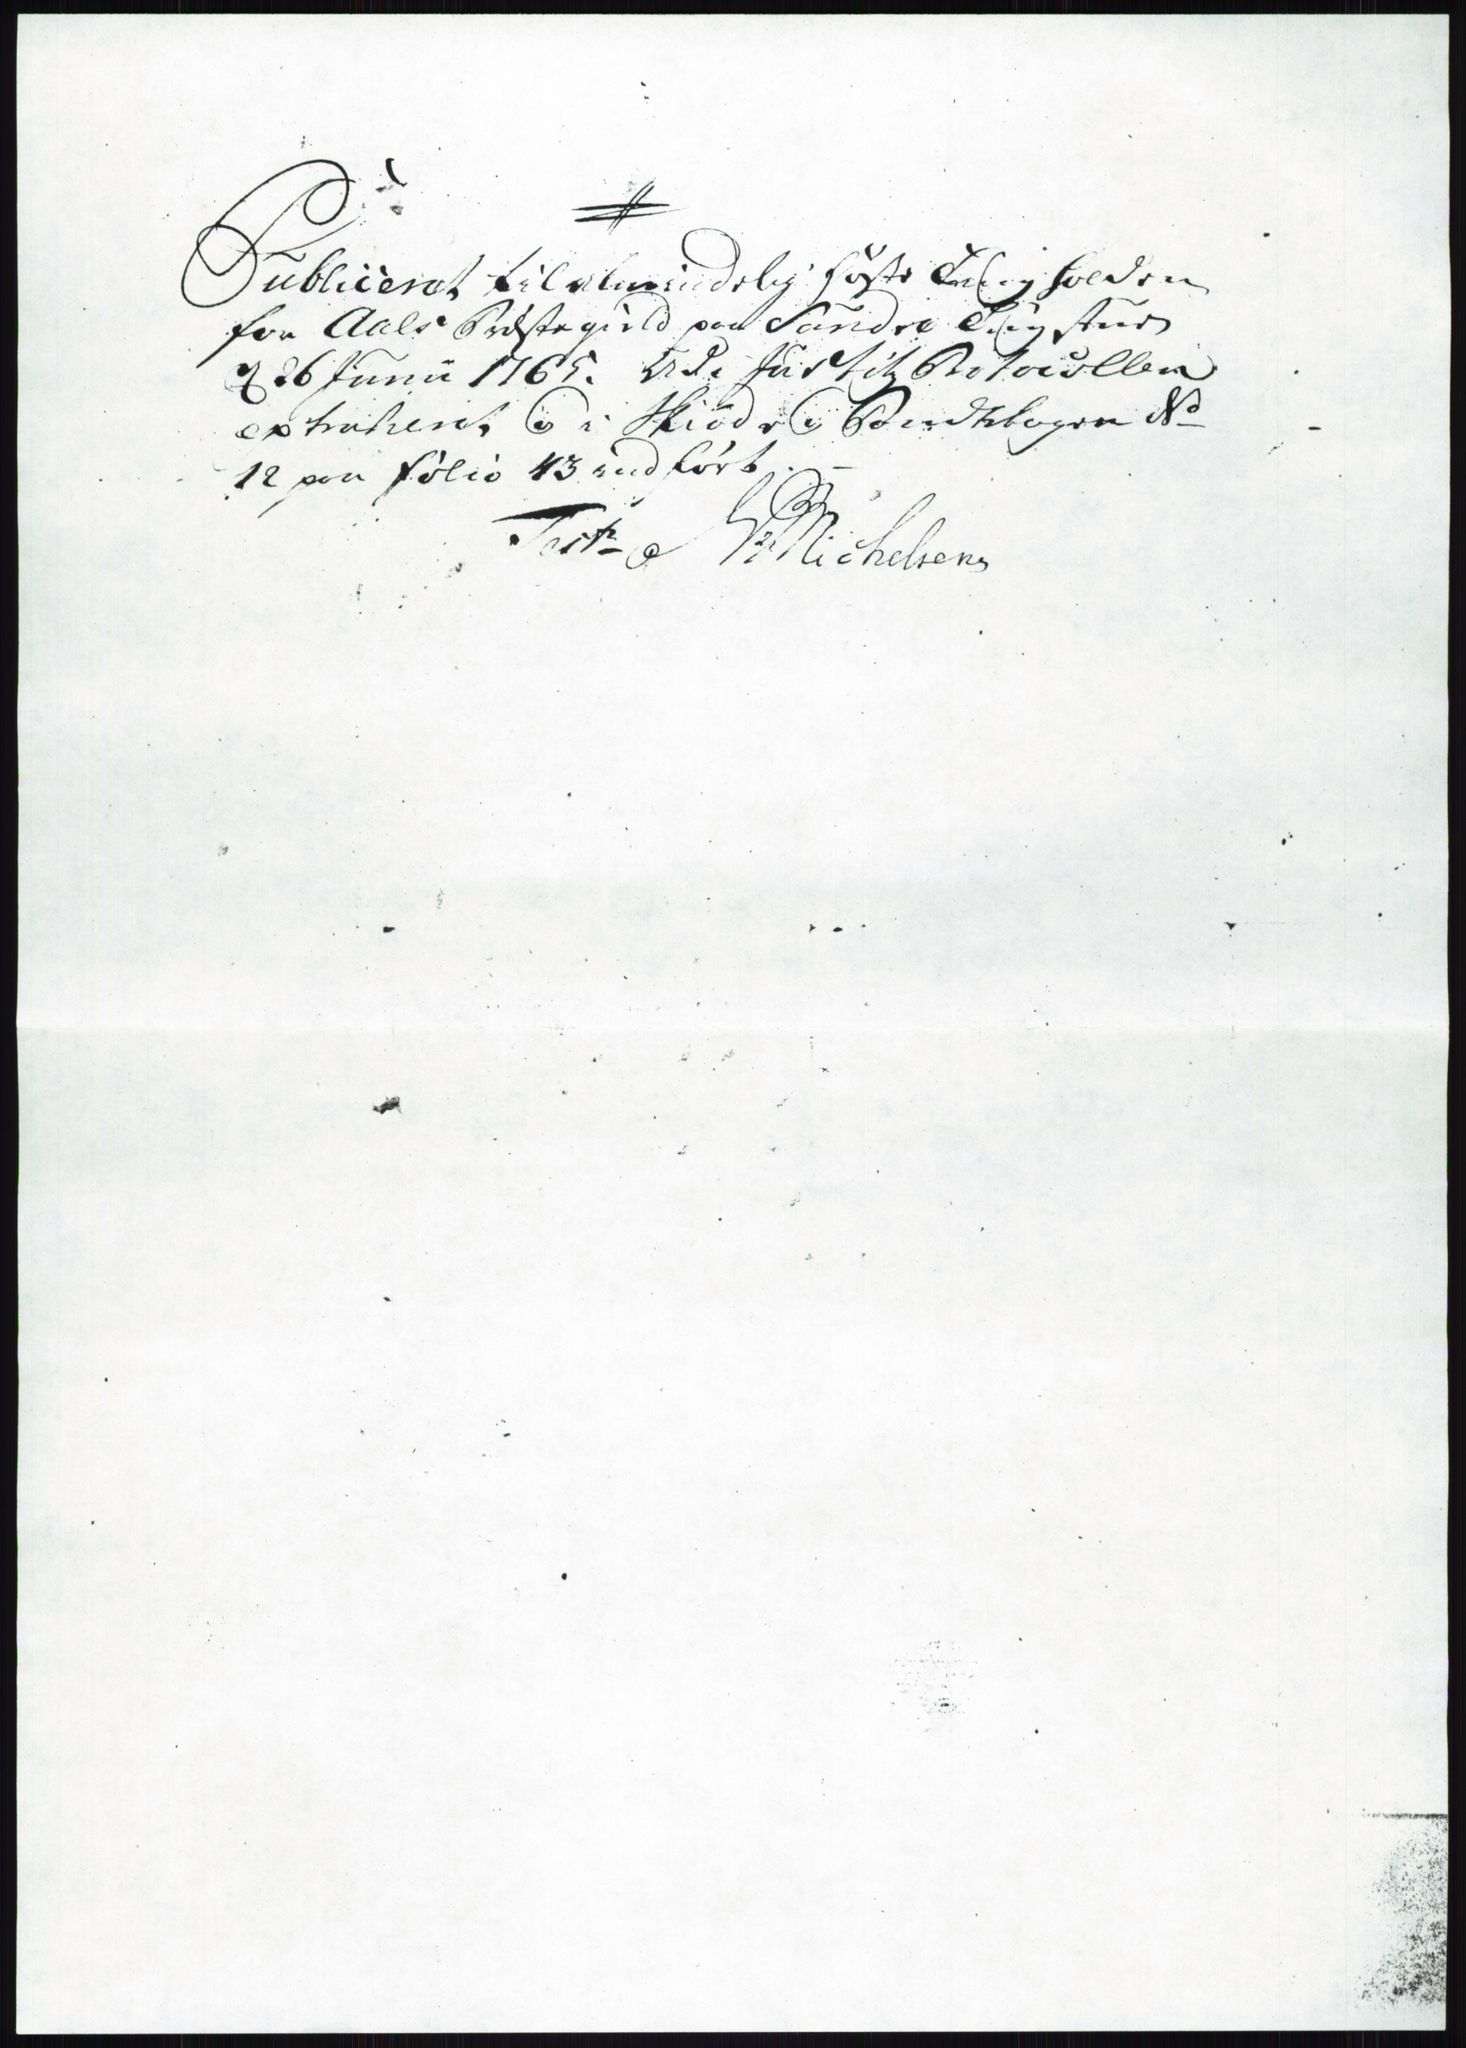 Publicerit til almindelig höste Ting holden
for Aals Præstegield paa Sundre Tingstue
d 26 Junii 1765. Udi Justitz Protocollen
extraherit og i Skiöde og Pandtebogen No
12 paa folio 43 indfört. –
Test: Michelsen